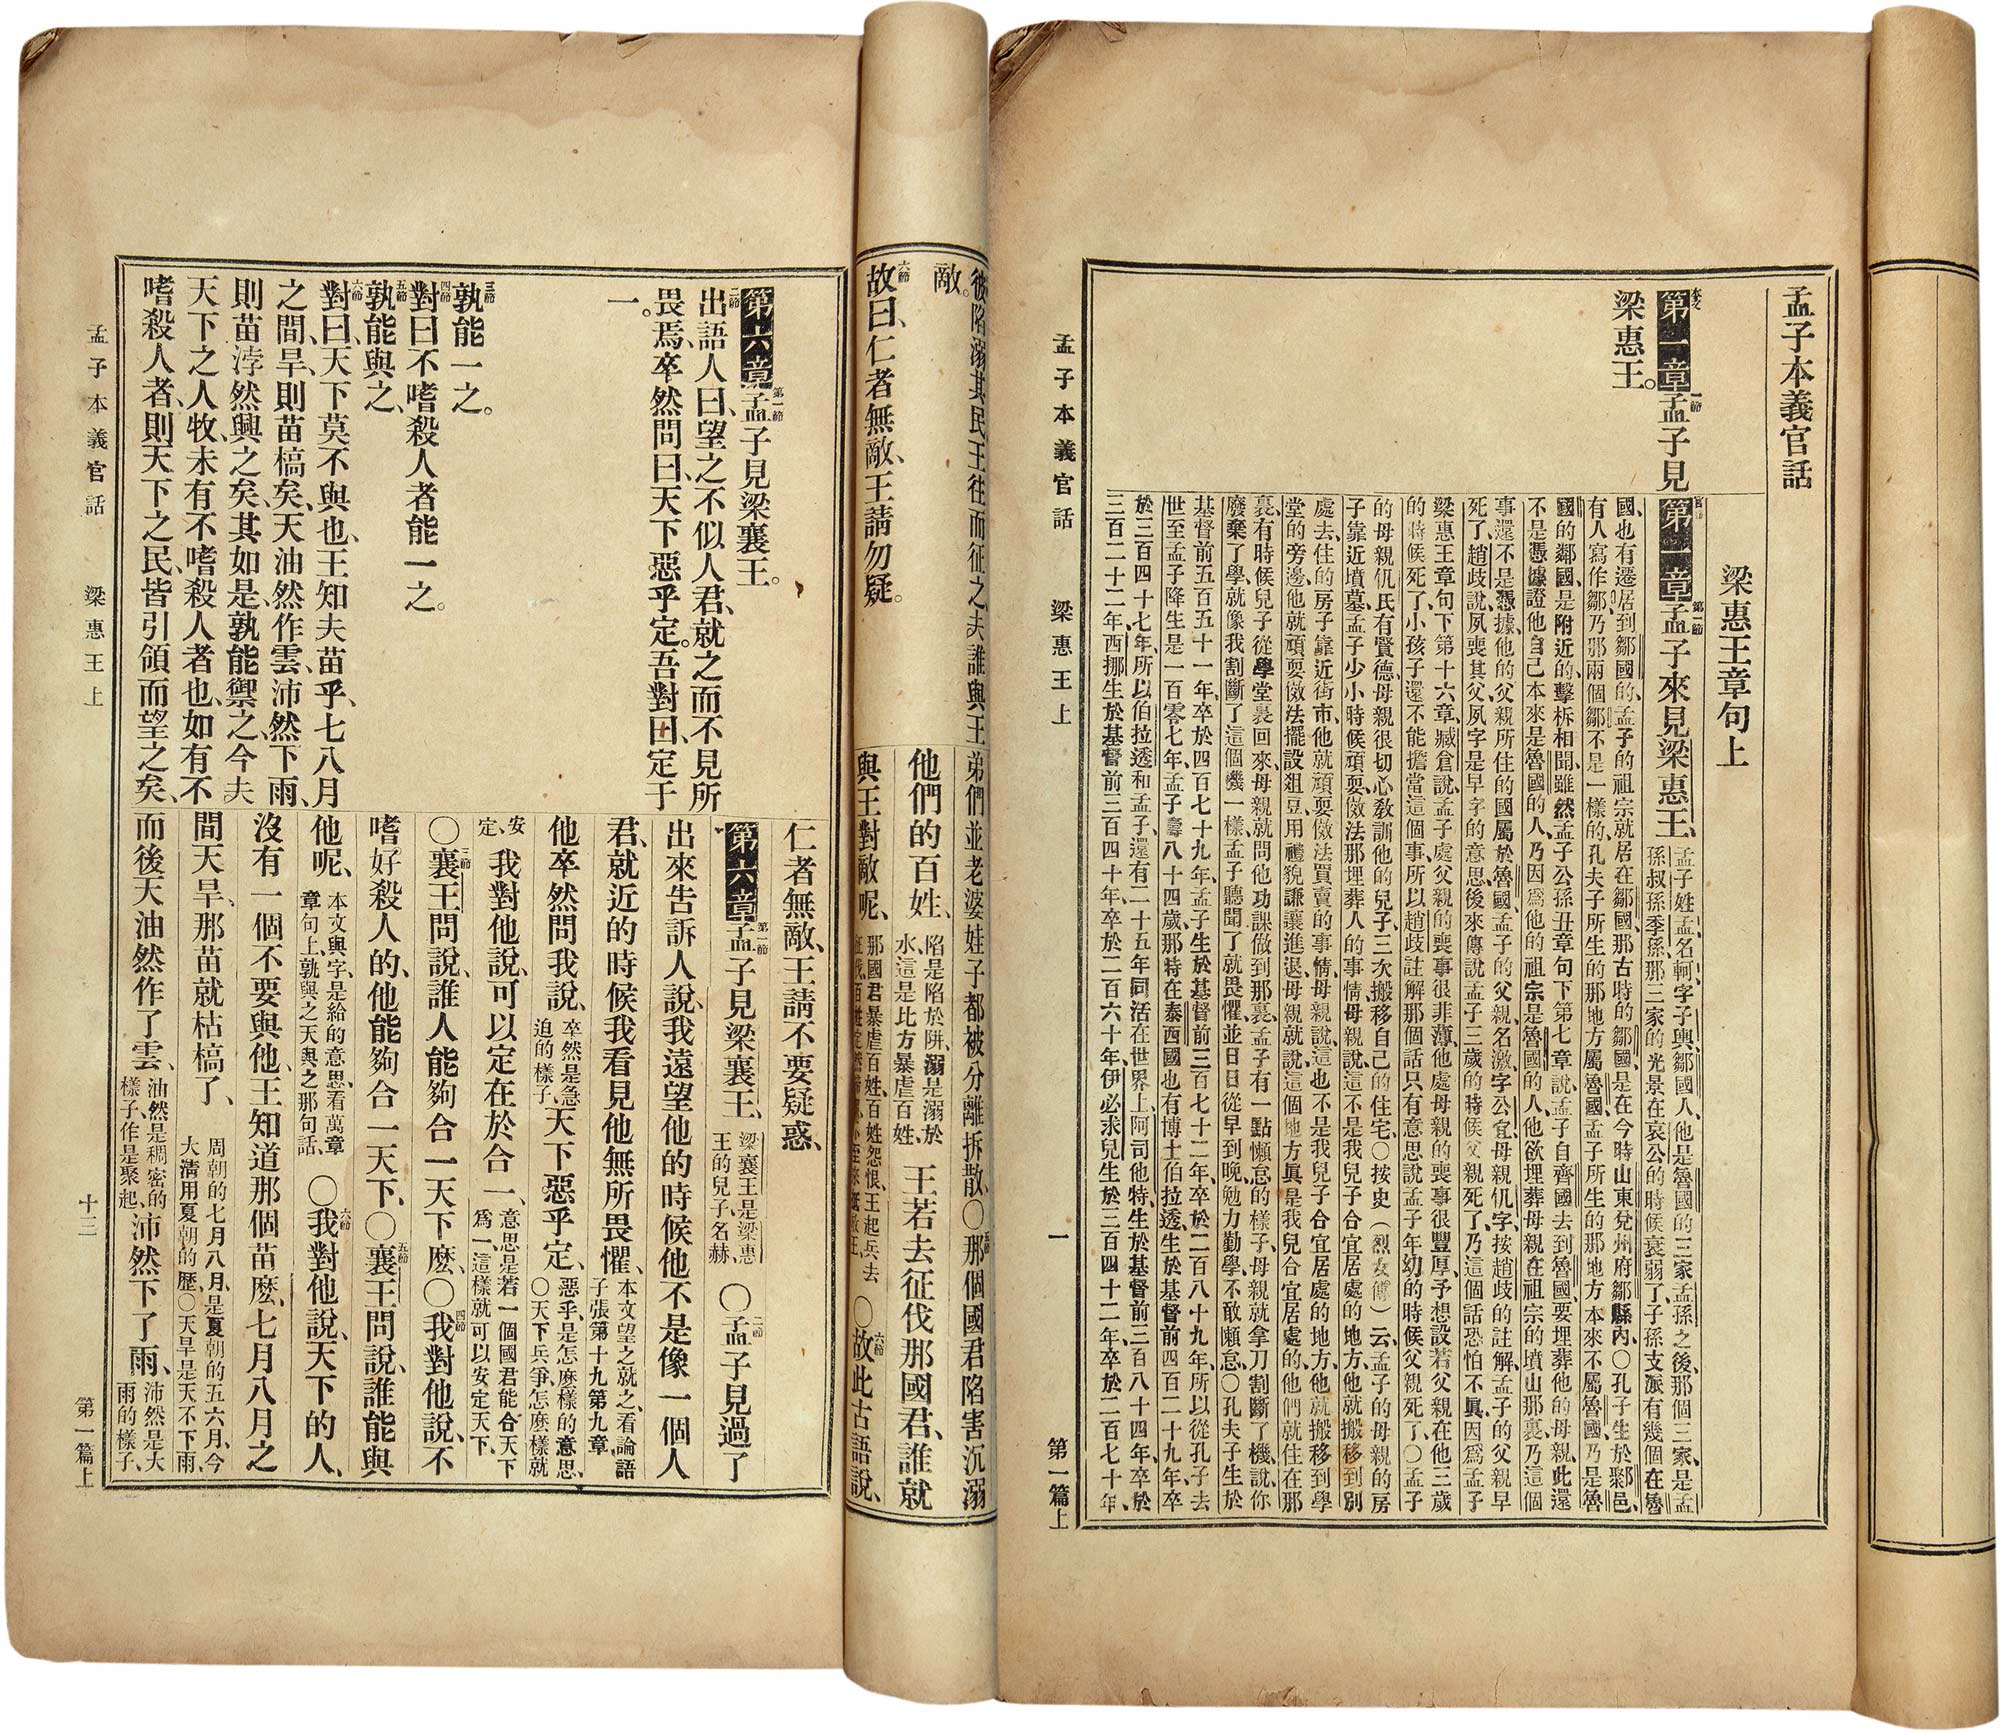 孟子本義官話
梁惠王章句上
本文
第一章
一節
孟子見
梁惠王。
官話
第一章
第一節
孟子來見梁惠王、
孟子姓孟、名軻、字子輿、鄒國人、他是魯國的三家、孟孫之後、那個三家、是孟
孫叔孫季孫、那三家的光景、在哀公的時候衰弱了、子孫支派、有幾個在魯
國、也有遷居到鄒國的、孟子的祖宗就居在鄒國、那古時的鄒國、是在今時山東兗州府鄒縣內、〇孔子生於鄹邑、
有人寫作鄒、乃那兩個鄒不是一樣的、孔夫子所生的那地方屬魯國、孟子所生的那地方本來不屬魯國、乃是魯
國的鄰國、是附近的、擊柝相聞、雖然孟子公孫丑章句下第七章說、孟子自齊國去到魯國、要埋葬他的母親、此還
不是憑據、證他自己本來是魯國的人、乃因爲他的祖宗是魯國的人、他欲埋葬母親在祖宗的墳山那裏、乃這個
事還不是憑據、他的父親所住的國屬於魯國、孟子的父親名激、字公宜、母親仉字、按趙歧的註解、孟子的父親早
死了、趙歧說夙喪其父、夙字是早字的意思、後來傳說孟子三歲的時候、父親死了、乃這個話恐怕不眞、因爲孟子
梁惠王章句下第十六章、臧倉說、孟子處父親的喪事很非薄、他處母親的喪事很豐厚、予想設若父親在他三歲
的時候死了、小孩子還不能擔當這個事、所以趙歧註解那個話、只有意思說孟子年幼的時候、父親死了、〇孟子
的母親仉氏有賢德、母親很切心教訓他的兒子、三次搬移自己的住宅、〇按史（烈女傳）云、孟子的母親的房
子靠近墳墓、孟子少小時候頑耍、倣法那埋葬人的事情、母親說、這不是我兒子合宜居處的地方、他就搬移到別
處去、住的房子靠近街市、他就頑耍倣法買賣的事情、母親說、這也不是我兒子合宜居處的地方、他就搬移到學
堂的旁邊、他就頑耍倣法擺設俎豆、用禮貌謙讓進退、母親就說、這個地方眞是我兒合宜居處的、他們就住在那
裏、有時候兒子從學堂裏回來、母親就問他功課做到那裏、孟子有一點懶怠的樣子、母親就拿刀割斷了機、說、你
廢棄了學、就像我割斷了這個機一樣、孟子聽聞了就畏懼、並日日從早到晚、勉力勤學、不敢懶怠、〇孔夫子生於
基督前五百五十一年、卒於四百七十九年、孟子生於基督前三百七十二年、卒於二百八十九年、所以從孔子去
世至孟子降生是一百零七年、孟子壽八十四歲、那特在泰西國也有博士伯拉透、生於基督前四百二十九年、卒
於三百四十七年、所以伯拉透和孟子、還有二十五年同活在世界上、阿司他特、生於基督前三百八十四年、卒於
三百二十二年、西挪生於基督前三百四十年、卒於二百六十年、伊必求兒生於三百四十二年、卒於二百七十年、
孟子本義官話　梁惠王上　一　第一篇上
彼陷溺其民、王往而征之、夫誰與王
敵。
六節
故曰、仁者無敵、王請勿疑。
弟們並老婆娃子都被分離拆散、〇
五節
那個國君陷害沉溺
他們的百姓、
陷是陷於阱、溺是溺於
水、這是比方暴虐百姓、
王若去征伐那國君、誰就
與王對敵呢、
那國君暴虐百姓、百姓怨恨、王起兵去
〇
六節
故此古語說、
第六章
第一節
孟子見梁襄王。
二節
出語人曰、望之不似人君、就之而不見所
畏焉、卒然問曰、天下惡乎定。吾對曰、定于
一。
三節
孰能一之。
四節
對曰、不嗜殺人者能一之。
五節
孰能與之、
六節
對曰、天下莫不與也、王知夫苗乎、七八月
之間、旱、則苗槁矣、天油然作雲、沛然下雨、
則苗浡然興之矣、其如是、孰能禦之、今夫
天下之人牧、未有不嗜殺人者也、如有不
嗜殺人者、則天下之民、皆引領而望之矣、
仁者無敵、王請不要疑惑、
第六章
第一節
孟子見梁襄王、
梁襄王是梁惠
王的兒子名赫
〇
二節
孟子見過了
出來告訴人說、我遠望他的時候、他不是像一個人
君、就近的時候、我看見他無所畏懼、
本文望之就之、看論語
子張第十九第九章、
他卒然問我說、
卒然是急
迫的樣子、
天下惡乎定、
惡乎、是怎麽樣的意思、
〇天下兵爭、怎麽樣就
安
定、
我對他說、可以定在於合一、
意思是若一個國君能合天下
爲一、這樣就可以安定天下、
〇
三節
襄王問說、誰人能夠合一天下麽、〇
四節
我對他說、不
嗜好殺人的、他能夠合一天下、〇
五節
襄王問說、誰能與
他呢、
本文與字、是給的意思、看萬章
章句上、孰與之、天與之、那句話
〇
六節
我對他說、天下的人、
沒有一個不要與他、王知道那個苗麽、七月八月之
間天旱、那苗就枯槁了、
周朝的七月八月、是夏朝的五六月、今
大淸用夏朝的歷、〇天旱是天不下雨、
而後天油然作了雲、
油然是稠密的
樣子、作是聚起、
沛然下了雨、
沛然是大
雨的樣子、
孟子本義官話　梁惠王上　十三　第一篇上